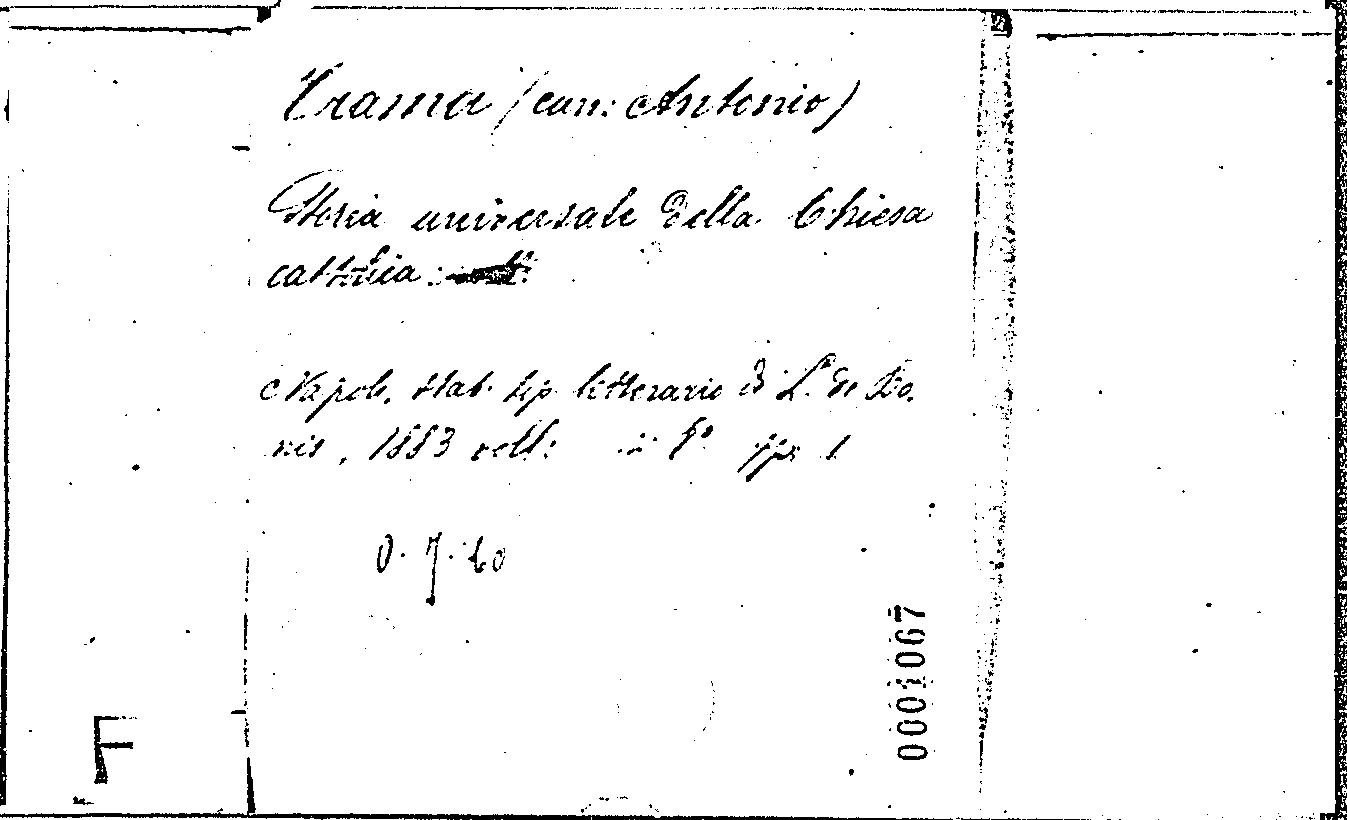 Trama (can: Antonio)
Storia universale della Chiesa
cattolica:
Napoli, stab. tip. letterario di L. de Bo-
nis, 1883 voll: in 8°
0. 7. 60
0001067
F